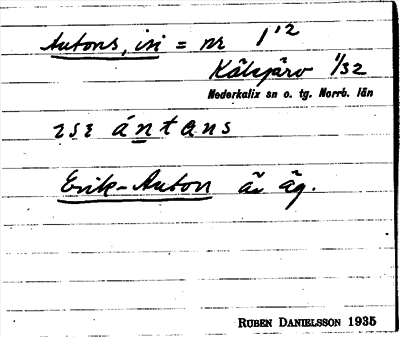 Antons, isi = nr 1¹²
Kälsjärv 1/32
Nederkalix sn o. tg. Norrb. län
ɩsɩ ántans
Erik-Anton är äg.
RUBEN DANIELSSON 1935